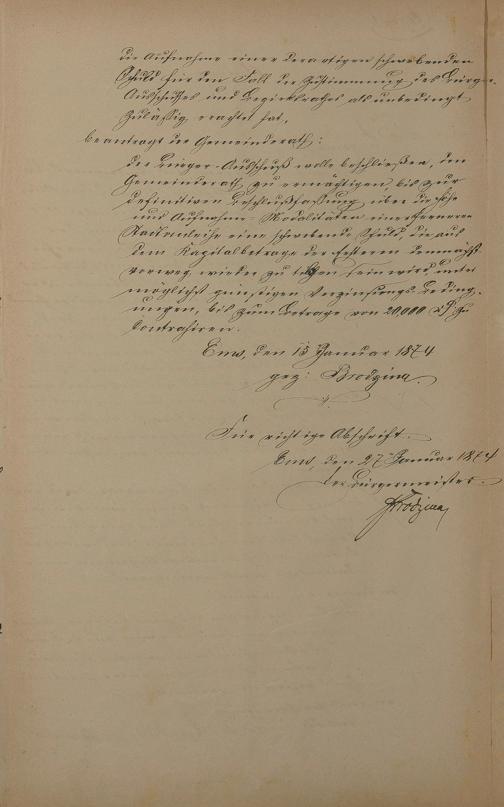 die Aufnahme einer derartigen schwebenden
Schuld für den Fall der Zustimmung des Bürger-
Ausschusses und Bezirksrathes als unbedingt
zulässig erachtet hat,
beantragt der Gemeinderath:
der Bürger-Ausschuß wolle beschließen, den
Gemeinderath zu ermächtigen, bis zur
definitiven Beschlußfassung über die Höhe
und Aufnahme-Modalitäten einer ferneren
Stadtanleihe eine schwebende Schuld, die aus
dem Kapitalbetrage der ersteren demnächst
vorweg wieder zu tilgen sein wird, unter
möglichst günstigen Verzinsungs-Beding-
ungen, bis zum Betrage von 20,000 zu
kontrahiren.
Ems, den 15 Januar 1874
gez: Brodzina.
Für richtige Abschrift.
Ems, den 27 Januar 1874
Der Bürgermeister.
Brodzina